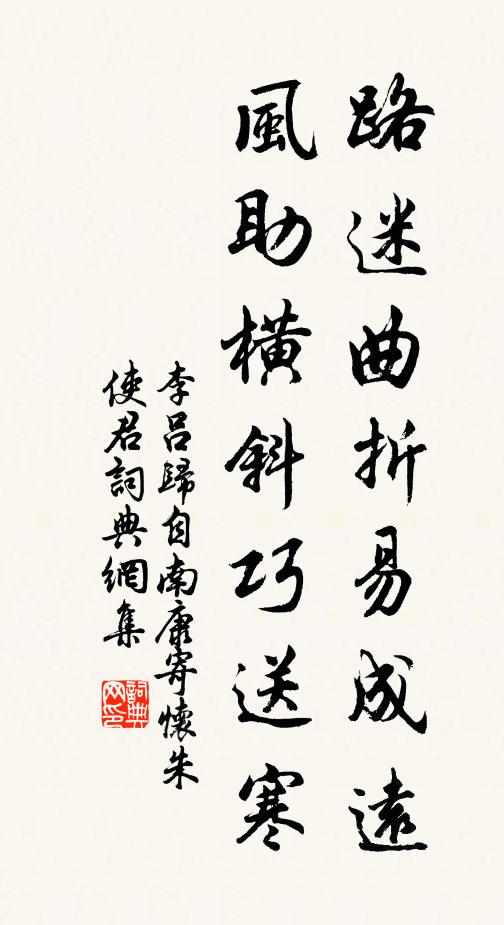 路迷曲折易成遠
風助橫斜巧送寒
李呂歸自南康寄懷朱
使君詞典網集
詞典
网印